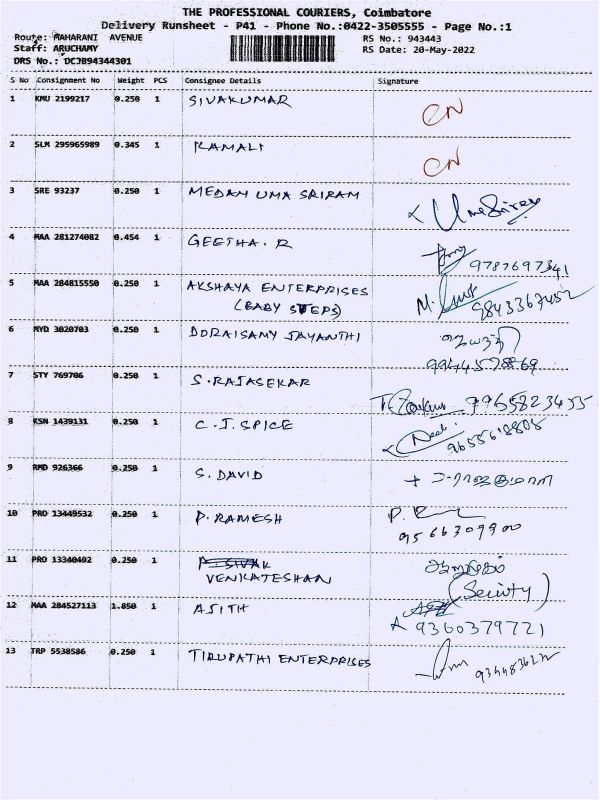 THE PROFESSIONAL COURIERS, Coimbatore
Delivery Runsheet - P41 - Phone No.:0422-3505555 - Page No.:1
Route: MAHARANI AVENUE RS No.: 943443
Staff: ARUCHAMY RS Date: 20-May-2022
DRS No.: DCJB94344301
S No Consignment No Weight PCS Consignee Details Signature
1 KMU 2199217 0.250 1 SIVAKUMAR CN
2 SLM 295965989 0.345 1 KAMALI CN
3 SRE 93237 0.250 1 MEDAM UMA SRIRAM
4 MAA 281274082 0.454 1 GEETHA. R
9787697341
5 MAA 284815550 0.250 1 AKSHAYA ENTERPRISES
(BABY STEPS) 9843367452
6 MYD 3020703 0.250 1 DORAISAMY JAYANTHI ஜெயந்தி
9944578869
7 STY 769706 0.250 1 S. RAJASEKAR
7965823455
8 KSN 1439131 0.250 1 C. J. SPICE
9655612808
9 RMD 926366 0.250 1 S. DAVID
10 PRO 13449532 0.250 1 P. RAMESH P.
9566309900
11 PRO 13340492 0.250 1
VENKATESHAN (Secirity)
12 MAA 284527113 1.850 1 AJITH
9360379721
13 TRP 5538586 0.250 1 TIRUPATHI ENTERPRISES